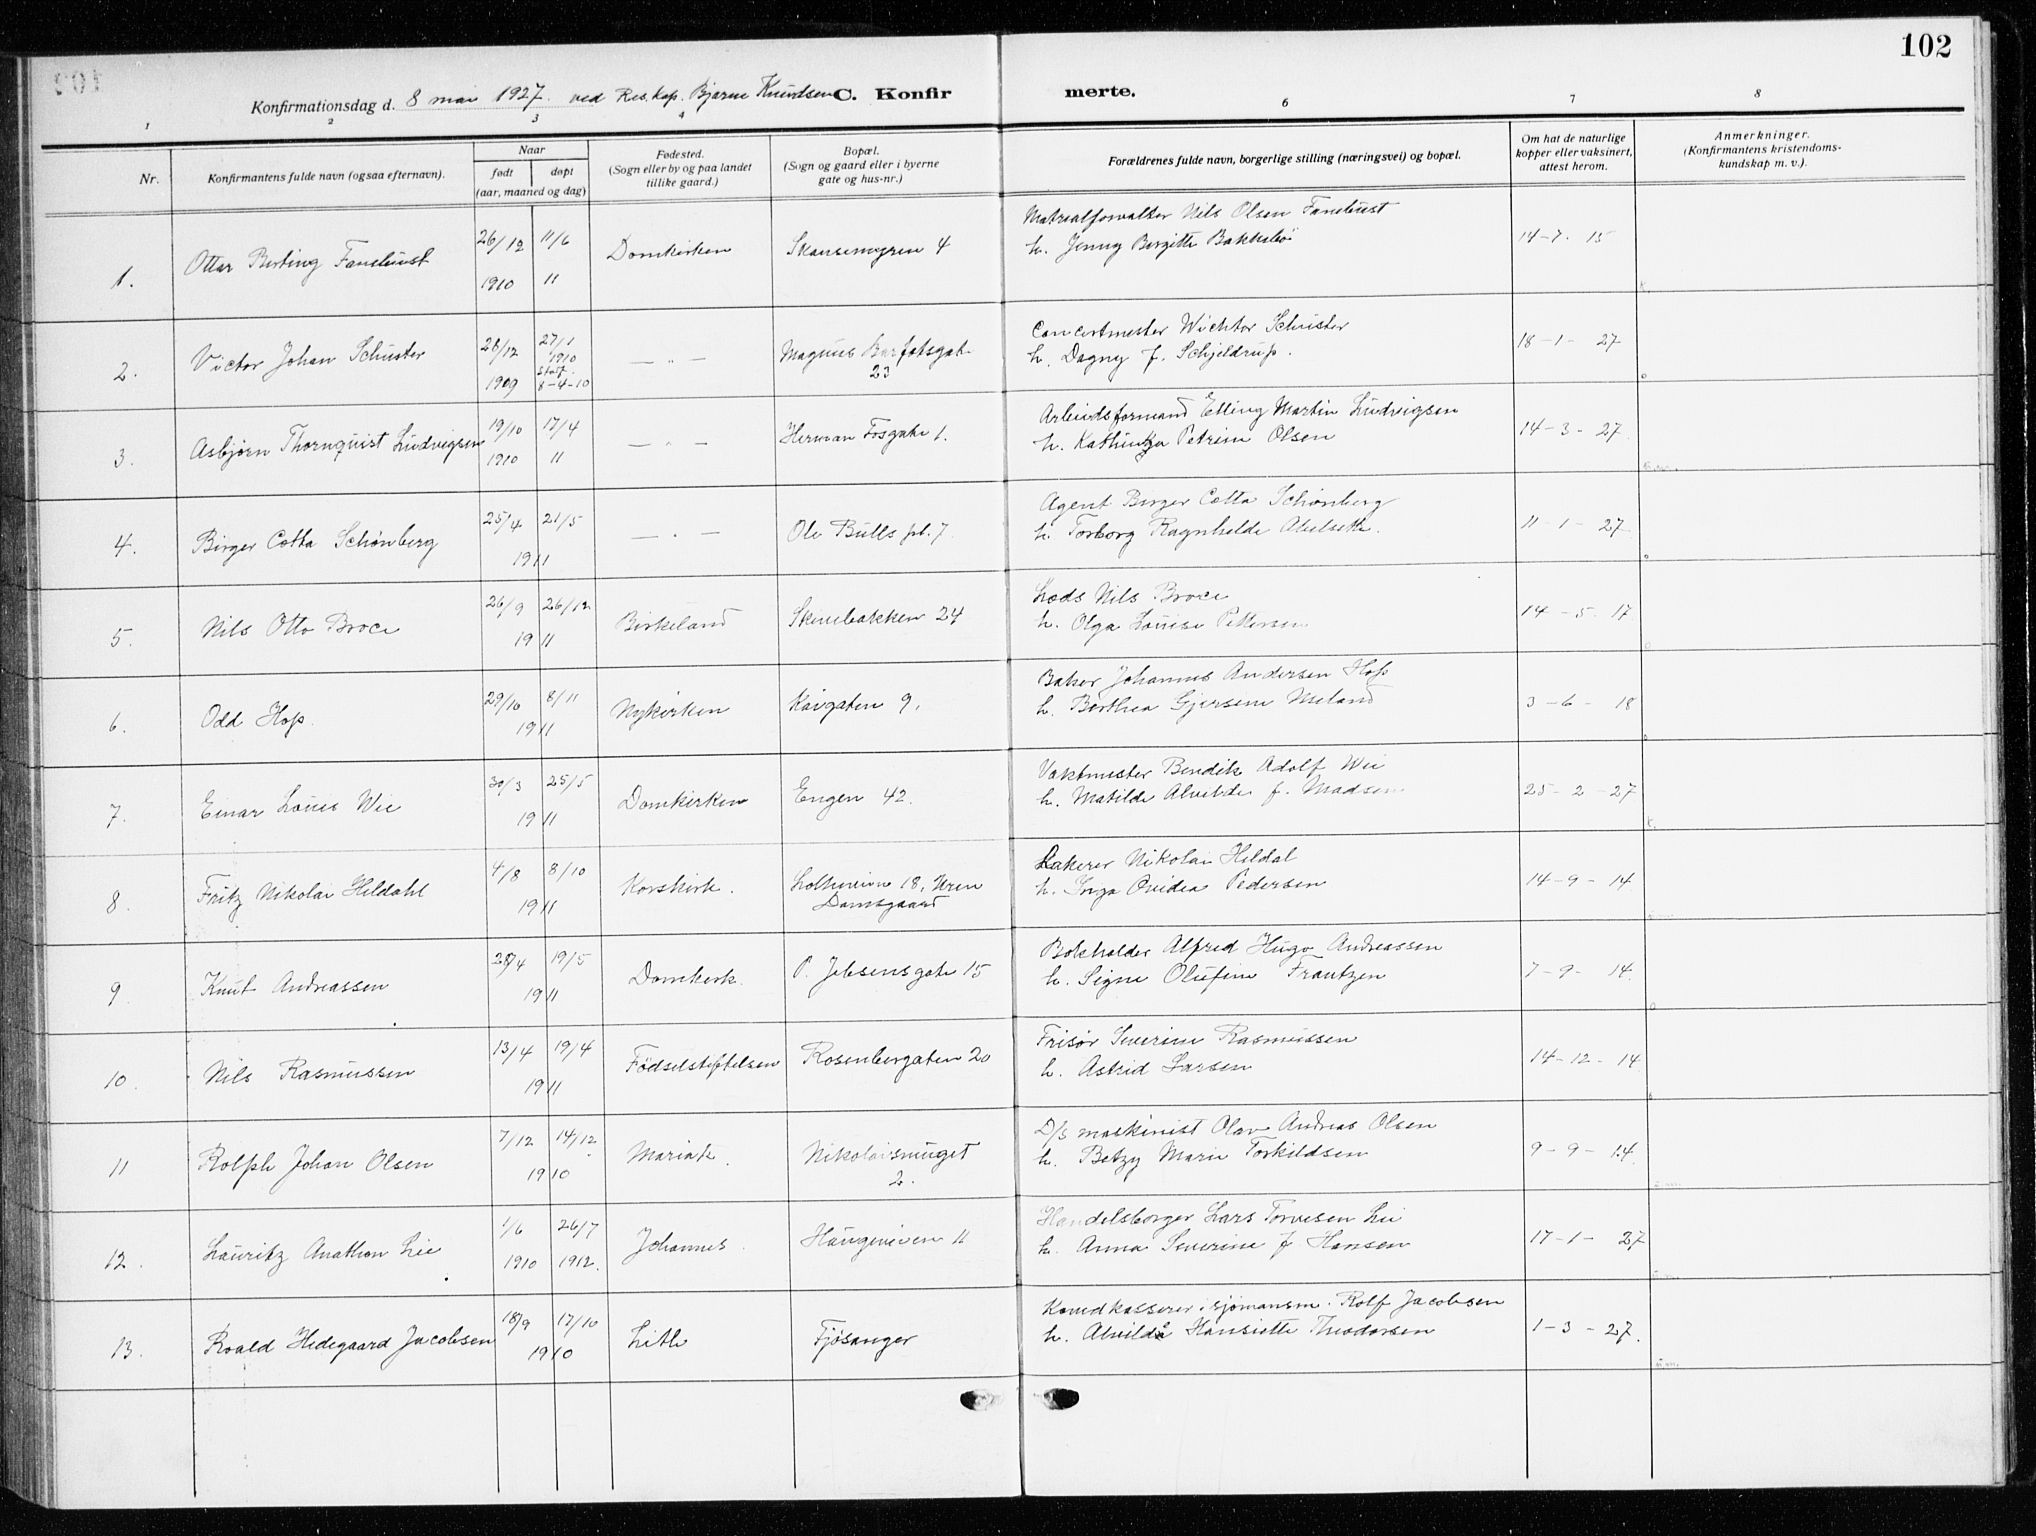 102
Konfirmationsdag d. 8 mai 1927. ved Res. kap. Bjarne Knudsen C. Konfirmerte.
1 2 3 4 6 7 8
Nr. Konfirmantens fulde navn (ogsaa efternavn). Naar født døpt (aar, maaned og dag) Fødested. (Sogn eller by og paa landet tillike gaard.) Bopæl. (Sogn og gaard eller i byerne gate og hus-nr.) Forældrenes fulde navn, borgerlige stilling (næringsvei) og bopæl. Om hat de naturlige kopper eller vaksinert, attest herom. Anmerkninger. (Konfirmantens kristendoms-kundskap m. v.).
1. Ottar Birting Fanebust 26/12 1910 11/6 11 Domkirken Skansemyren 4 Matrealforvalter Nils Olsen Fanebust
h. Jenny Birgitte Bakkebø 14-7. 15
2. Victor Johan Schuster 28/12 1909 27/1 1910 stadf. 8-4-10 — " — Magnus Barfotsgate 23 Concertmester Wichtor Schuster
h. Dagny f. Schjeldrup. 18-1- 27
3. Asbjørn Thornquist Ludvigsen 19/10 1910 17/4 11 — " — Herman Fosgate 1. Arbeidsformand Elling Martin Ludvigsen
h. Kathinka Petrine Olsen 14-3-27
4. Birger Cotta Schønberg 25/4 21/5 1911 — " — Ole Bulls pl. 7 Agent Birger Cotta Schønberg
h. Torborg Ragnhilde Abelseth. 11-1-27
5. Nils Otto Broce 26/9 26/12 1911 Birkeland Skivebakken 24 Lods Nils Broce
h. Olga Louise Pettersen 14-5-17
6. Odd Hop. 29/10 8/11 1911 Nykirken Kaigaten 9. Baker Johannes Andersen Hop
h. Berthea Gjersine Meland 3-6-18
7. Einar Louis Wie 30/3 25/5 1911 Domkirken Engen 42. Vaktmester Bendik Adolf Wie
h. Matilde Alvilde f. Madsen 25-2-27
8. Fritz Nikolai Hildahl 4/8 8/10 1911 Korskirk. 18, Uren Damsgaard Lakerer Nikolai Hildal
h. Inga Ovidea Pedersen 14-9-14
9. Knut Andreassen 28/4 19/5 1911 Domkirk. P. Jebsensgate 15 Bokholder Alfred Hugo Andreassen
h. Signe Olufine Frantzen 7-9-14
10. Nils Rasmussen 13/4 19/4 1911 Fødselstiftelsen Rosenbergaten 20 Frisør Severine Rasmussen
h. Astrid Larsen 14-12-14
11 Rolph Johan Olsen 7/12 14/12 1910 Mariak. Nikolaismuget 2. D/s maskinist Olav Andreas Olsen
h. Betzy Marie Torkildsen 9-9-14
12. Lauritz Anathon Lie 1/6 1910 26/7 1912. Johannes Haugeveien 11 Handelsborger Lars Torvesen Lie
h. Anna Severine f Hansen 17-1-27
13. Roald Hedegaard Jacobsen 18/9 17/10 1910 Litle Fjøsanger i sjømansm. Rolf Jacobsen
h. Alvilde Hansiette Theodorsen 1-3-27.